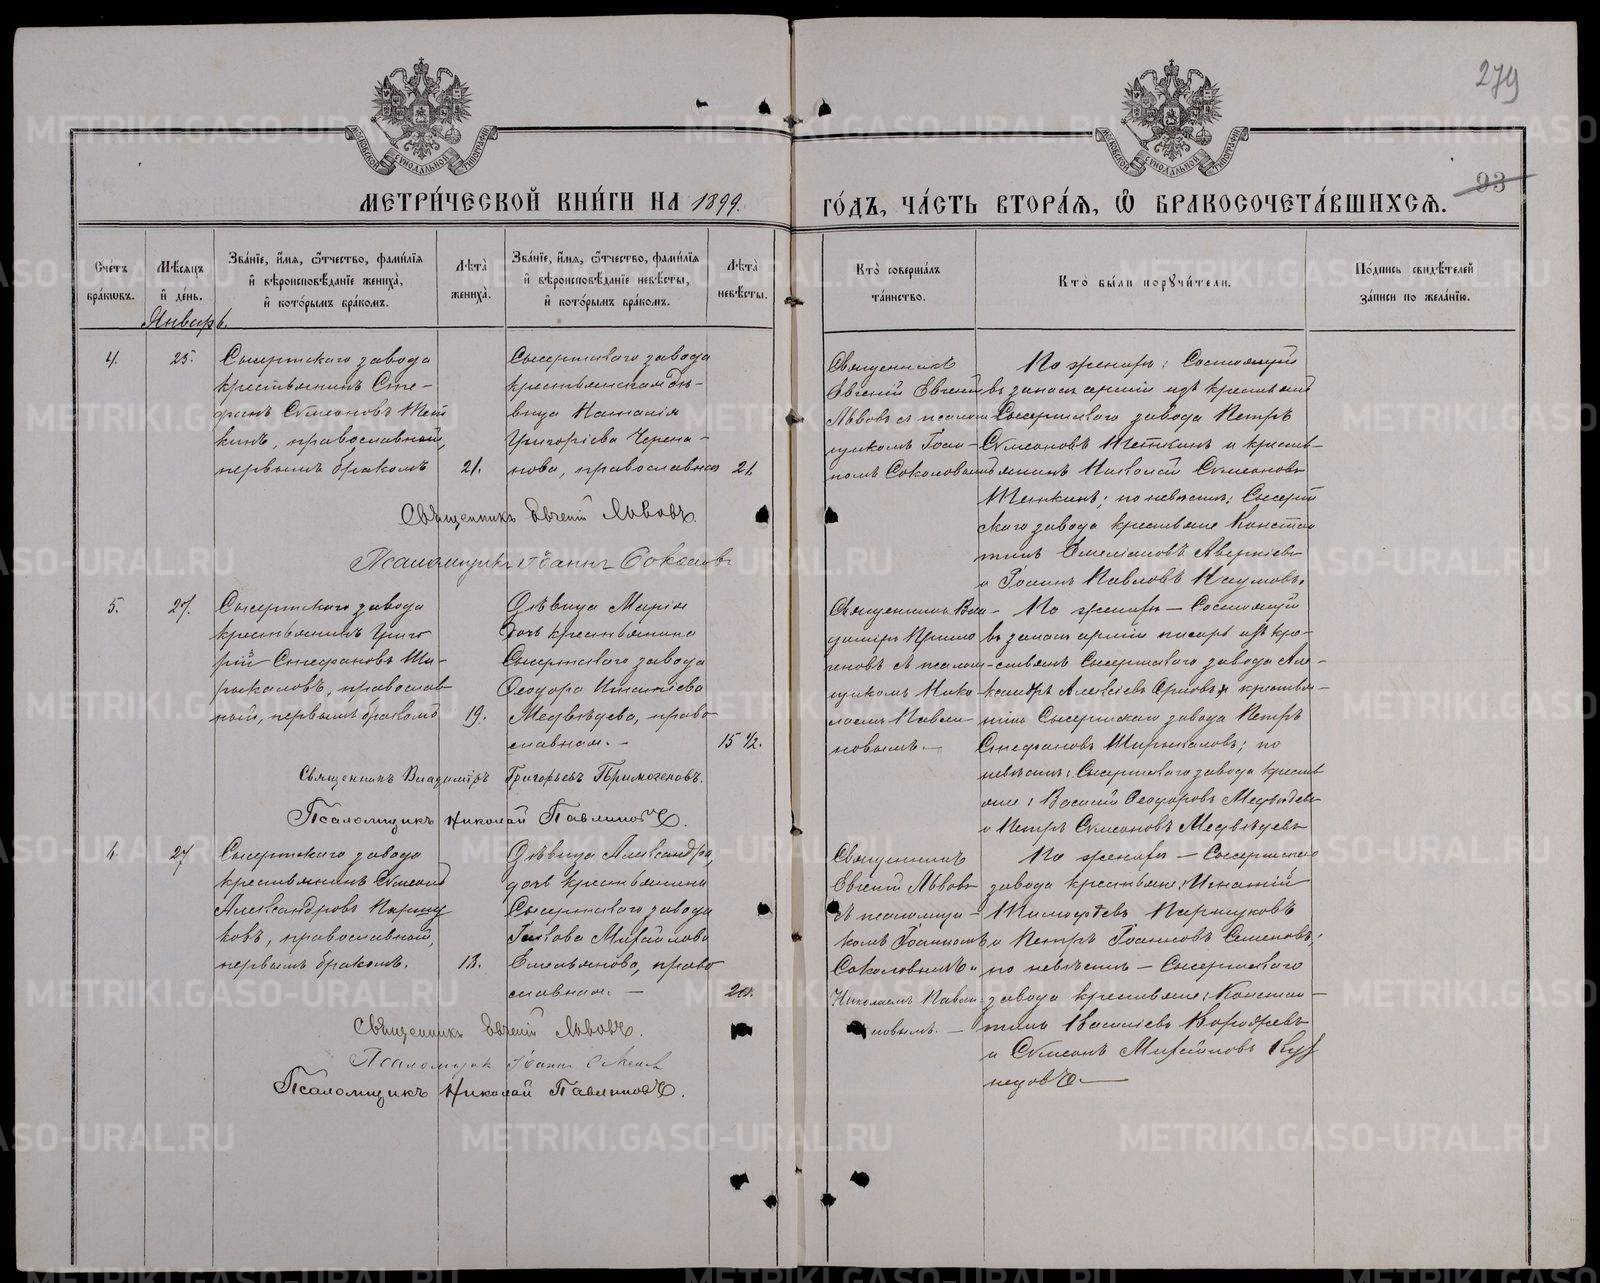 279
93
МЕТРИ́ЧЕСКОЙ КНИ́ГИ НА 1899.
ГО́ДЪ, ЧА́СТЬ ВТОРА́Я, Ѽ БРАКОСОЧЕТА́ВШИХСѦ.
Сче́тъ бра́кѡвъ.
Мѣ́сяцъ й де́нь.
Зва́нїе, и́мя, ѻ́тчество, фами́лїя
й вѣроисповѣ́данїе жениха̀,
й кото́рымъ бра́комъ.
Лѣ́та жениха̀.
Зва́нїе, и́мя, ѻ́тчество, фами́лїя
й вѣроисповѣ́данїе невѣ́сты,
й кото́рымъ бра́комъ.
Лѣ́та невѣ́сты.
Кто̀ соверша́лъ та́инство.
Кто̀ бы́ли порꙋчи́тели.
По́дпись свидѣ́телей за́писи по жела́нїю.
Январь.
4.
25.
Сысертскаго завода
крестьянинъ Сте-
фанъ Сѵмеоновъ
кинъ, православный,
первымъ бракомъ
21.
Сысертскаго завода
крестьянская дѣ-
вица Наталія
Григоріева Черепа-
нова, православная
21.
Священникъ
Евгеній Евгеній
Львовъ съ псалом
щикомъ Іоан-
номъ Соколовымъ
По женихѣ: Состоящій
въ запасѣ арміи изъ крестьянъ
Сысертскаго завода Петръ
Сѵмеоновъ и кресть-
янинъ Николай Сѵмеоновъ
по невѣстѣ: Сысерт
скаго завода крестьяне Констан
тинъ Емеліановъ Аверкіевъ
и Іоаннъ Павловъ Наумовъ.
Священникъ Евгеній Львовъ.
Псаломщикъ Іоаннъ Соколовъ
5.
27.
Сысертскаго завода
крестьянинъ Григо
рій Стефановъ Ши-
рыкаловъ, православ
ный, первымъ бракомъ
19.
Дѣвица Марія
дочь крестьянина
Сысертскаго завода
Ѳеодора Игнатіева
Медвѣдева, право
славная. –
15 ½.
Священникъ Вла-
диміръ Примо
геновъ съ псалом-
щикомъ Нико
лаемъ Павли-
новымъ. –
По женихѣ – Состоящій
въ запасѣ арміи писарь изъ кре-
стьянъ Сысертскаго завода Але-
ксандръ Алексіевъ и крестья-
нинъ Сысертскаго завода Петръ
Стефановъ Ширыкаловъ; по
невѣстѣ: Сысертскаго завода крестья
яне: Василій Ѳеодоровъ Медвѣдевъ
и Петръ Сѵмеоновъ Медвѣдевъ
Священникъ Владиміръ Григорьевъ Примогеновъ.
Псаломщикъ Николай Павлиновъ.
6.
27
Сысертскаго завода
крестьянинъ Сѵмеонъ
Александровъ Паршу
ковъ, православный,
первымъ бракомъ.
18.
Дѣвица Александра,
дочь крестьянина
Сысертскаго завода
Іакова Михайлова
Емельянова, право
славная. –
20.
Священникъ
Евгеній Львовъ
съ псаломщи-
комъ Іоанномъ
Соколовымъ и
Николаемъ Павли-
новымъ. –
По женихѣ – Сысертскаго
завода крестьяне: Игнатій
Тимоѳѣевъ Паршуковъ
и Петръ Іоанновъ Семеновъ;
по невѣстѣ – Сысертскаго
завода крестьяне: Констан-
тинъ Василіевъ
и Сѵмеонъ Михайловъ Куз
нецовъ. –
Священникъ Евгеній Львовъ.
Псаломщикъ Іоаннъ
Псаломщикъ Николай Павлиновъ.
METRIKI.GASO-URAL.RU